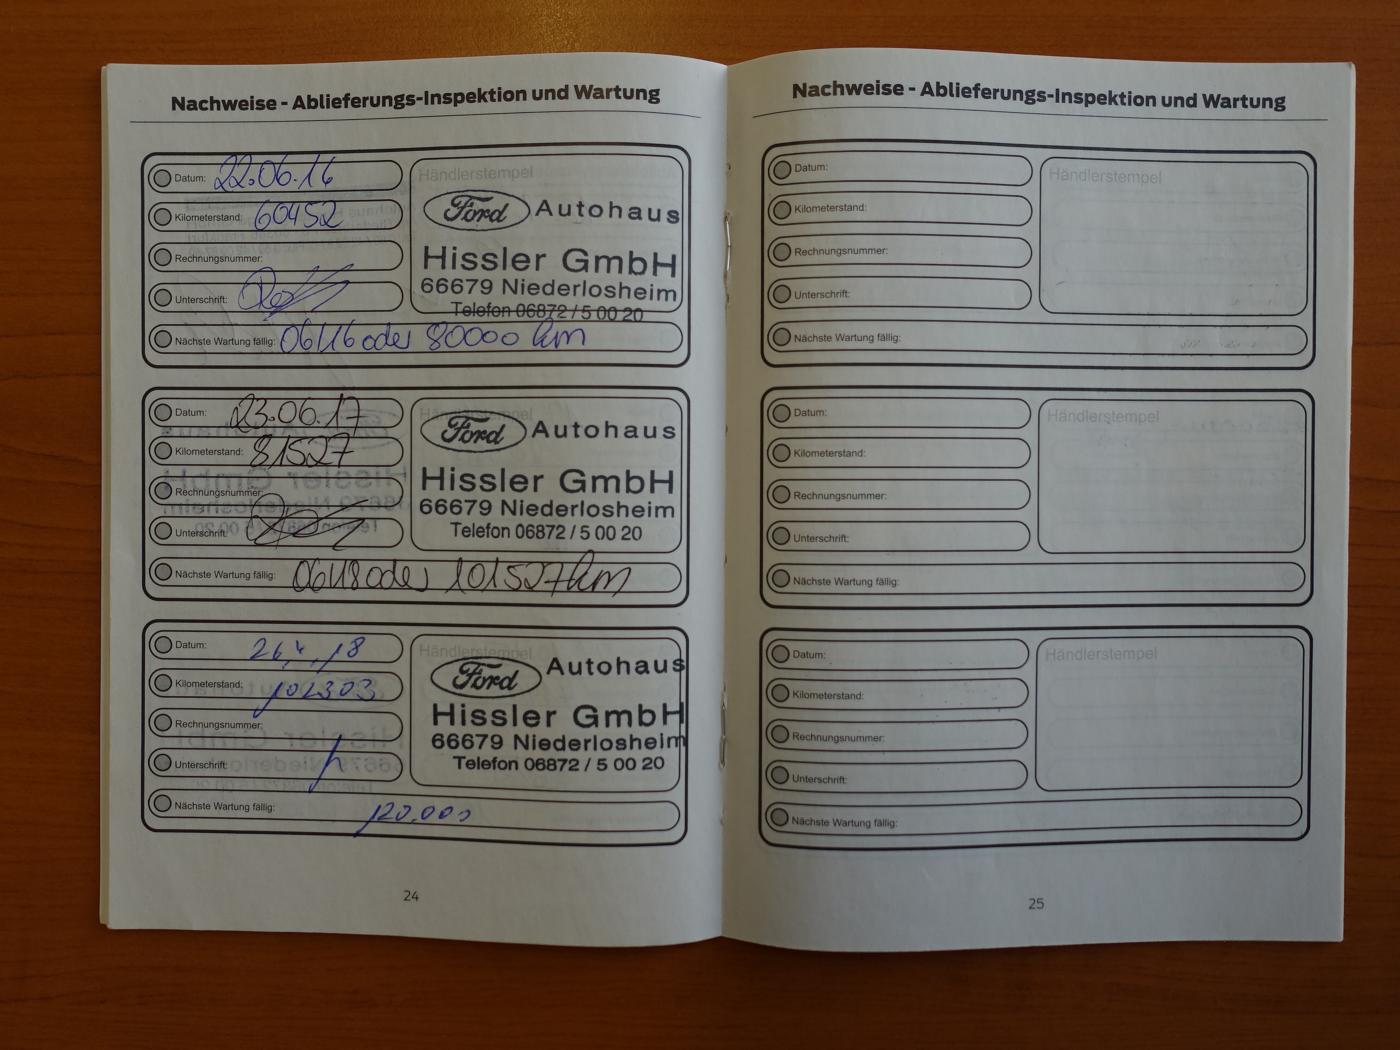 Nachweise - Ablieferungs-Inspektion und Wartung
Datum: 22.06.16
Kilometerstand: 60452
Rechnungsnummer:
Unterschrift:
Nächste Wartung fällig: 06/16 oder 80000 km
Händlerstempel
Ford Autohaus
Hissler GmbH
66679 Niederlosheim
Telefon 06872 / 5 00 20
Datum: 23.06.17
Kilometerstand: 81527
Rechnungsnummer:
Unterschrift:
Nächste Wartung fällig: 06/18 oder 101527 km
Händlerstempel
Ford Autohaus
Hissler GmbH
66679 Niederlosheim
Telefon 06872 / 5 00 20
Datum: 26.4.18
Kilometerstand: 102303
Rechnungsnummer:
Unterschrift:
Nächste Wartung fällig: 120.000
Händlerstempel
Ford Autohaus
Hissler GmbH
66679 Niederlosheim
Telefon 06872 / 5 00 20
24
Nachweise - Ablieferungs-Inspektion und Wartung
Datum:
Kilometerstand:
Rechnungsnummer:
Unterschrift:
Nächste Wartung fällig:
Händlerstempel
Datum:
Kilometerstand:
Rechnungsnummer:
Unterschrift:
Nächste Wartung fällig:
Händlerstempel
Datum:
Kilometerstand:
Rechnungsnummer:
Unterschrift:
Nächste Wartung fällig:
Händlerstempel
25